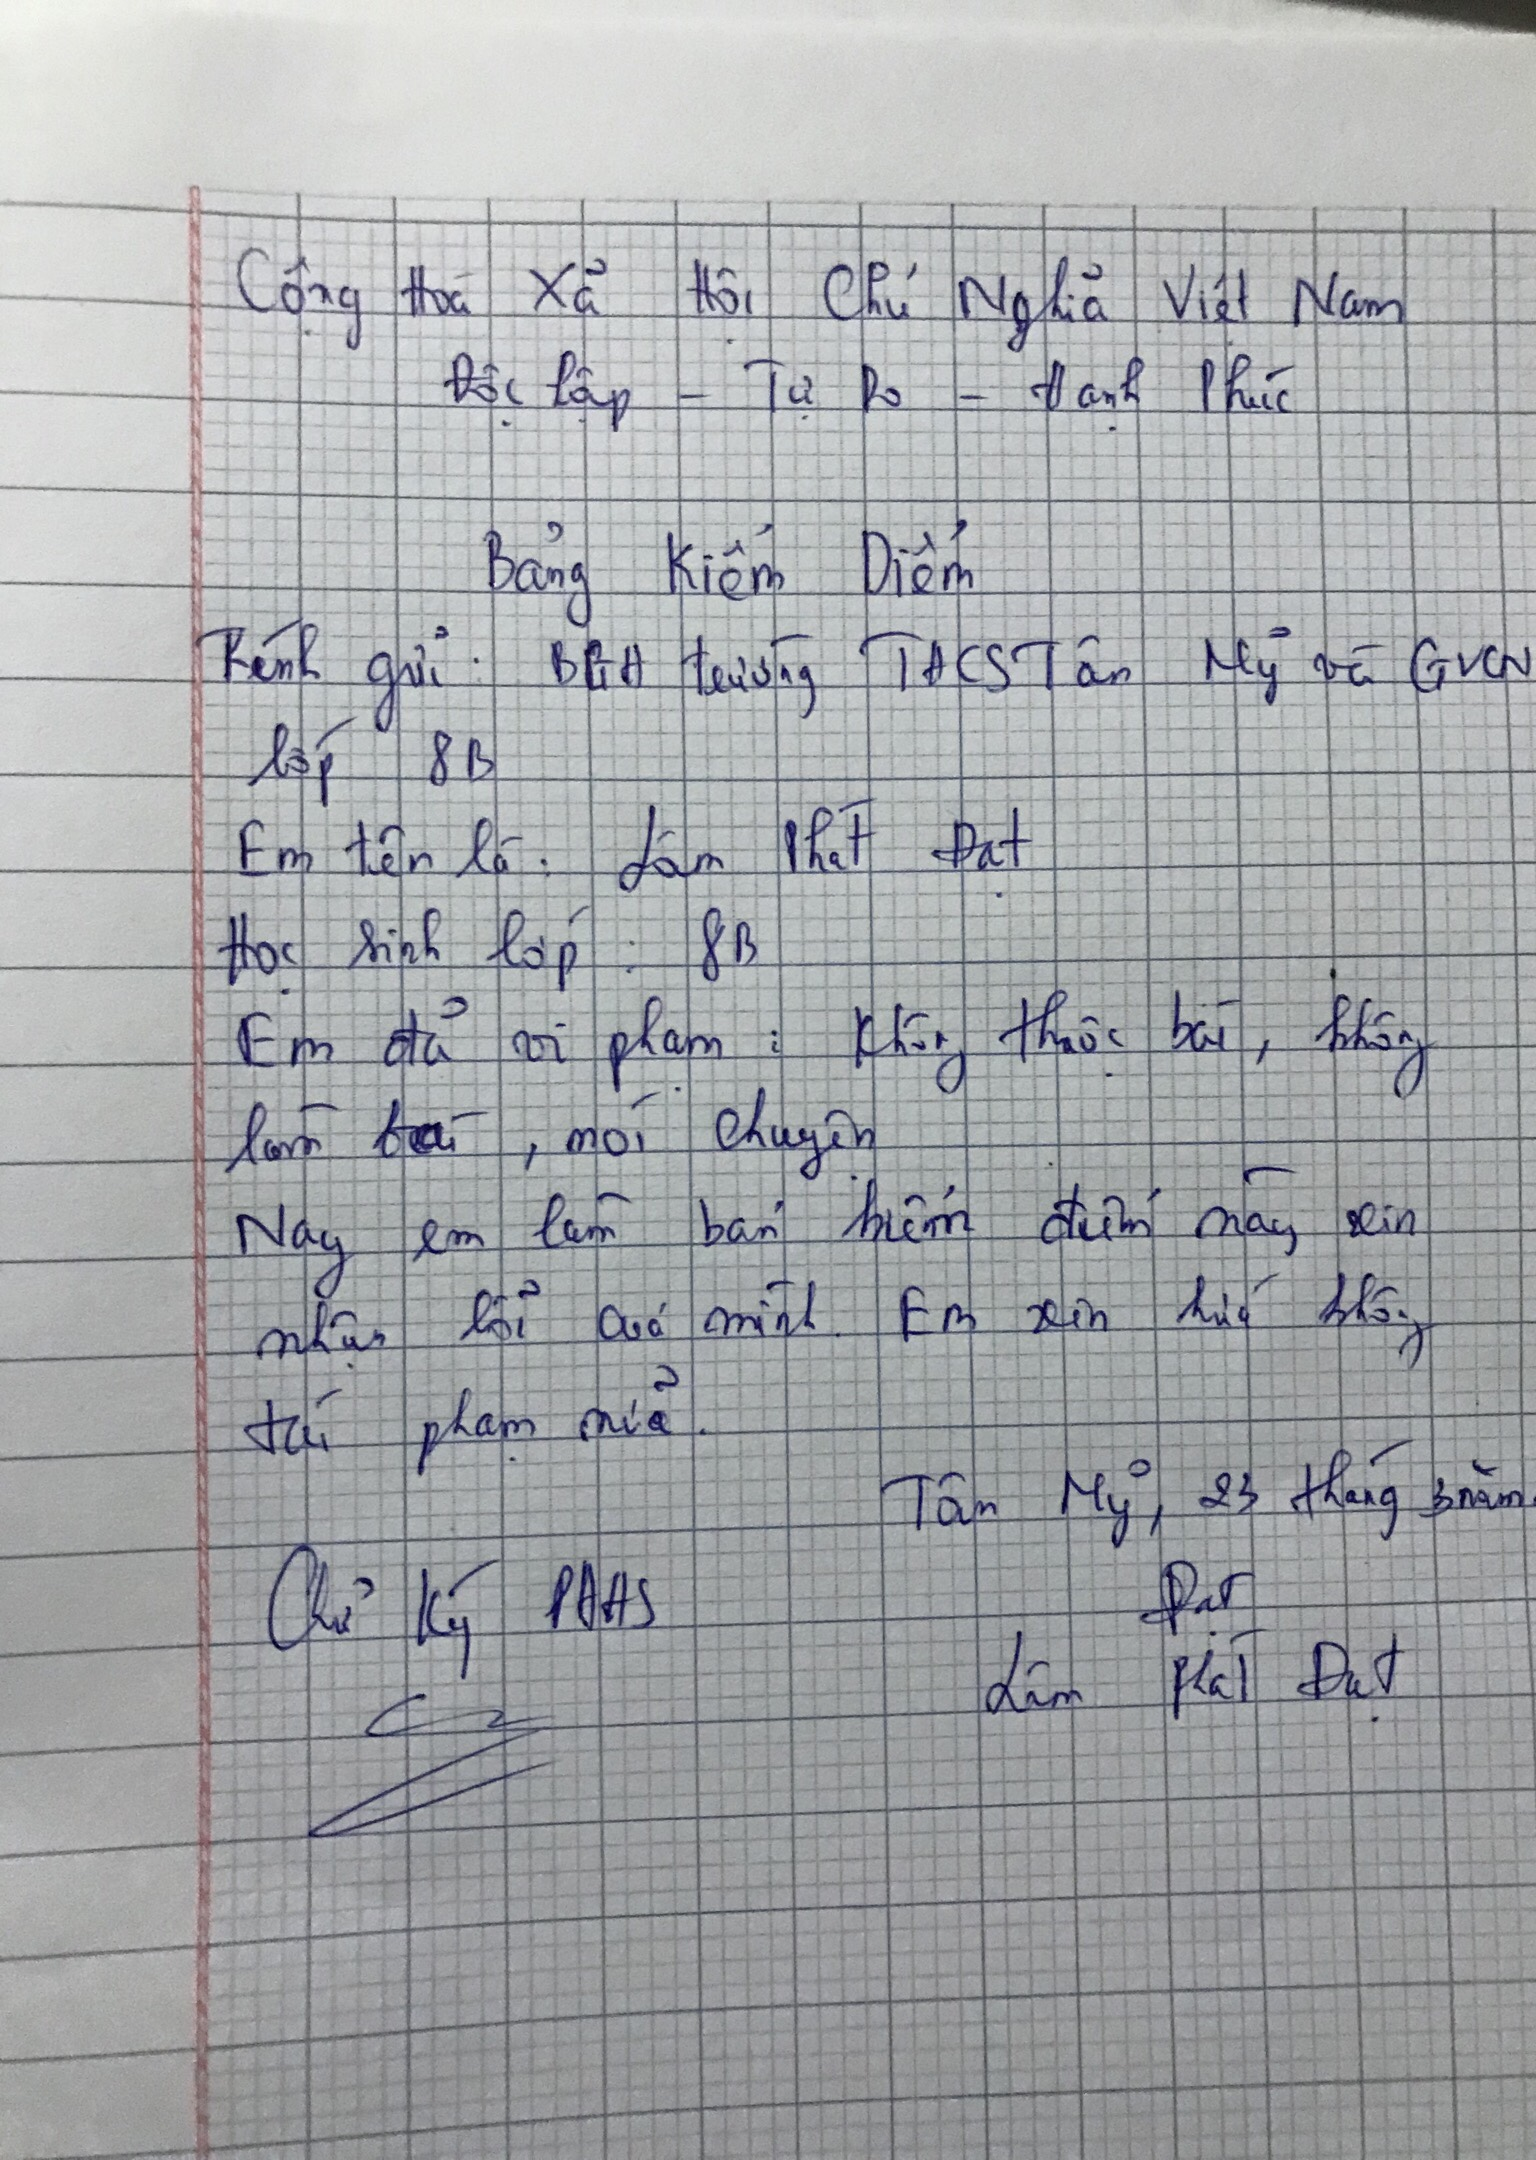 Cộng Hoà Xả Hội Chủ Nghỉa Việt Nam
Độc lập - Tự Do - Hạnh Phúc
Bảng Kiểm Điểm
Kính gửi: BGH trường THCS Tân Mỷ và GVCN
lớp 8B
Em tên là: Lâm Phát Đạt
Học sinh lớp: 8B
Em đả vi phạm: Không thuộc bài, không
làm bài, nói chuyện
Nay em làm bản kiểm điểm này xin
nhận lổi của mình. Em xin hứa không
tái phạm nửa.
Tân Mỷ, 23 tháng 3 năm
Chử Ký PHHS
Đạt
Lâm Phát Đạt